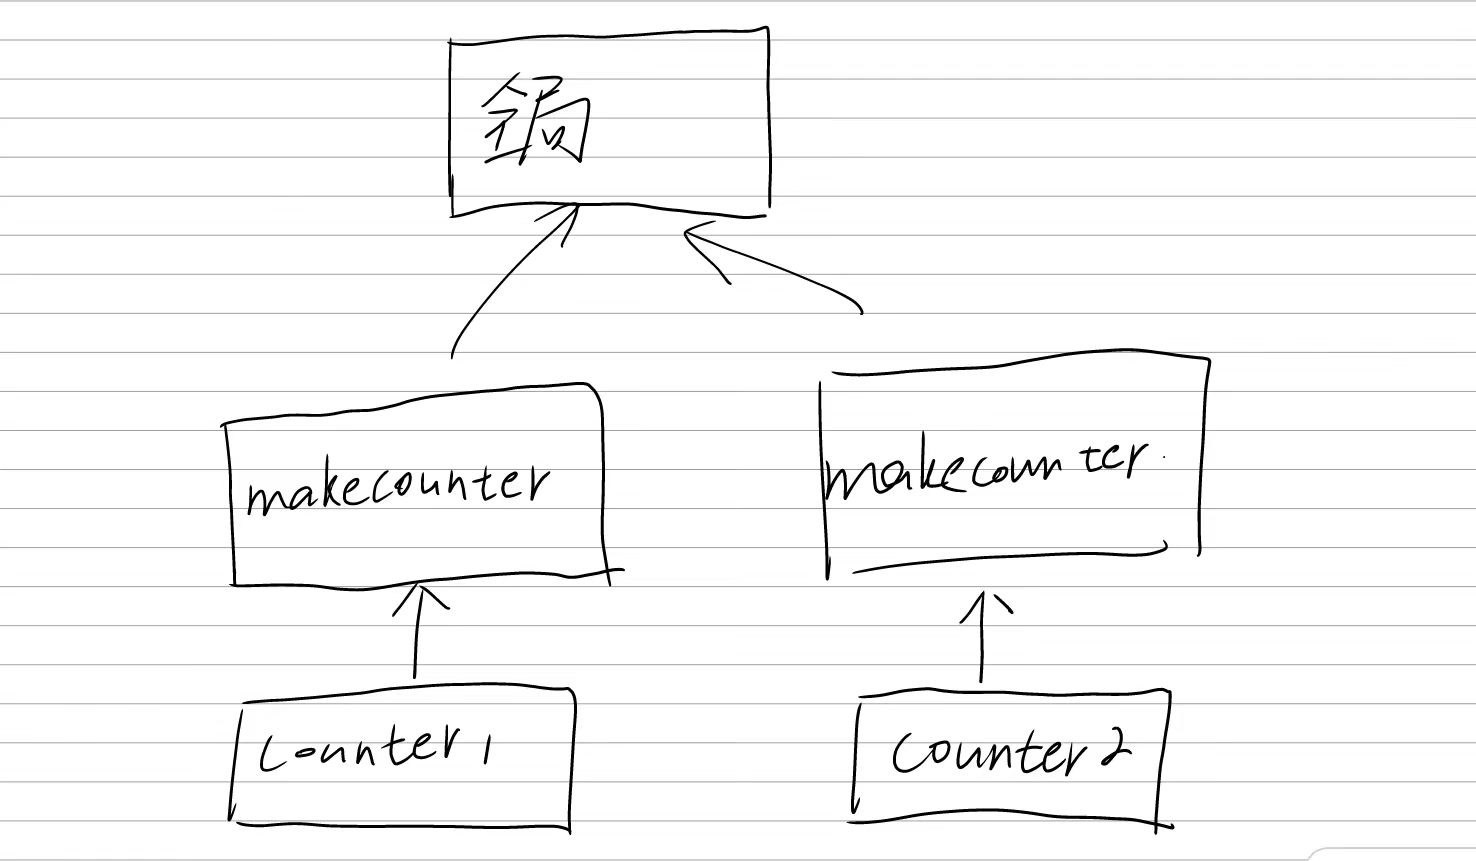 全局
makecounter
makecounter
counter1
counter2